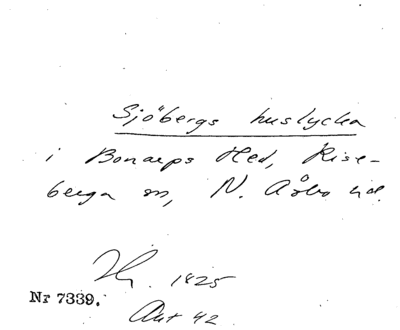 Sjöbergs huslycka
i Bonarps Hed, Rise-
berga sn, N. Åsbo hd.
1825
Nr 7339.
Aut 42